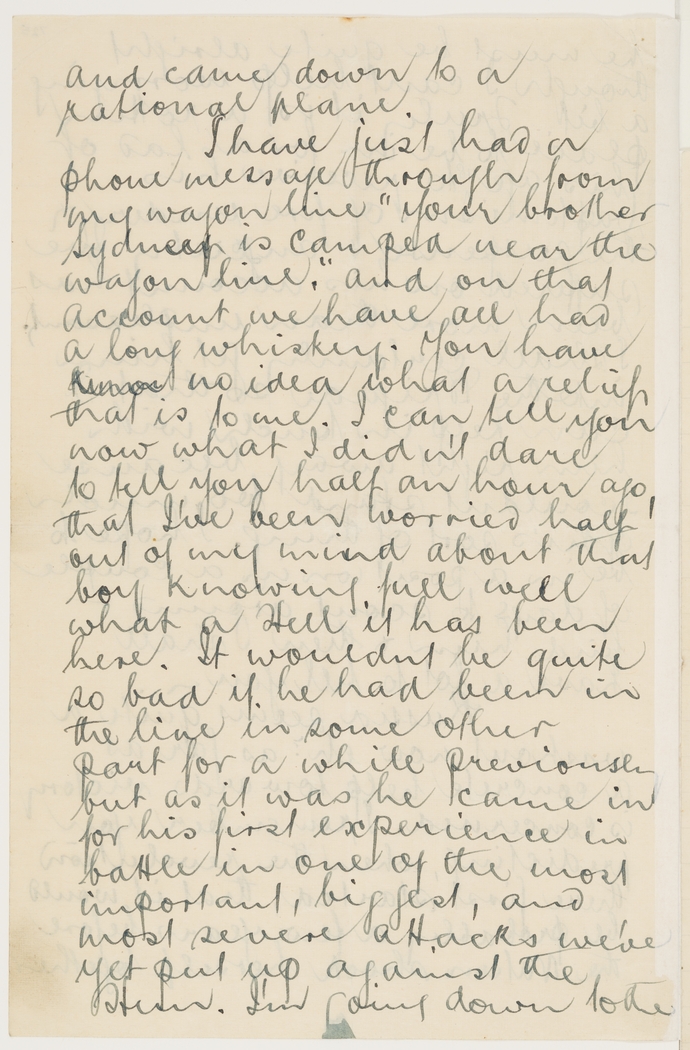 and came down to a
rational plane.
I have just had a
phone message through from
my wagon line "your brother
Sydney is camped near the
wagon line." and on that
account we have all had
a long whiskey. You have
know no idea what a relief
that is to me. I can tell you
now what I didn't dare
to tell you half an hour ago,
that I've been worried half
out of my mind about that
boy knowing full well
what a Hell it has been
here. It wouldnt be quite
so bad if he had been in
the line in some other
part for a while previously
but as it was he came in
for his first experience in
battle in one of the most
important, biggest, and
most severe attacks we've
yet put up against the
Hun. I'm going down to the